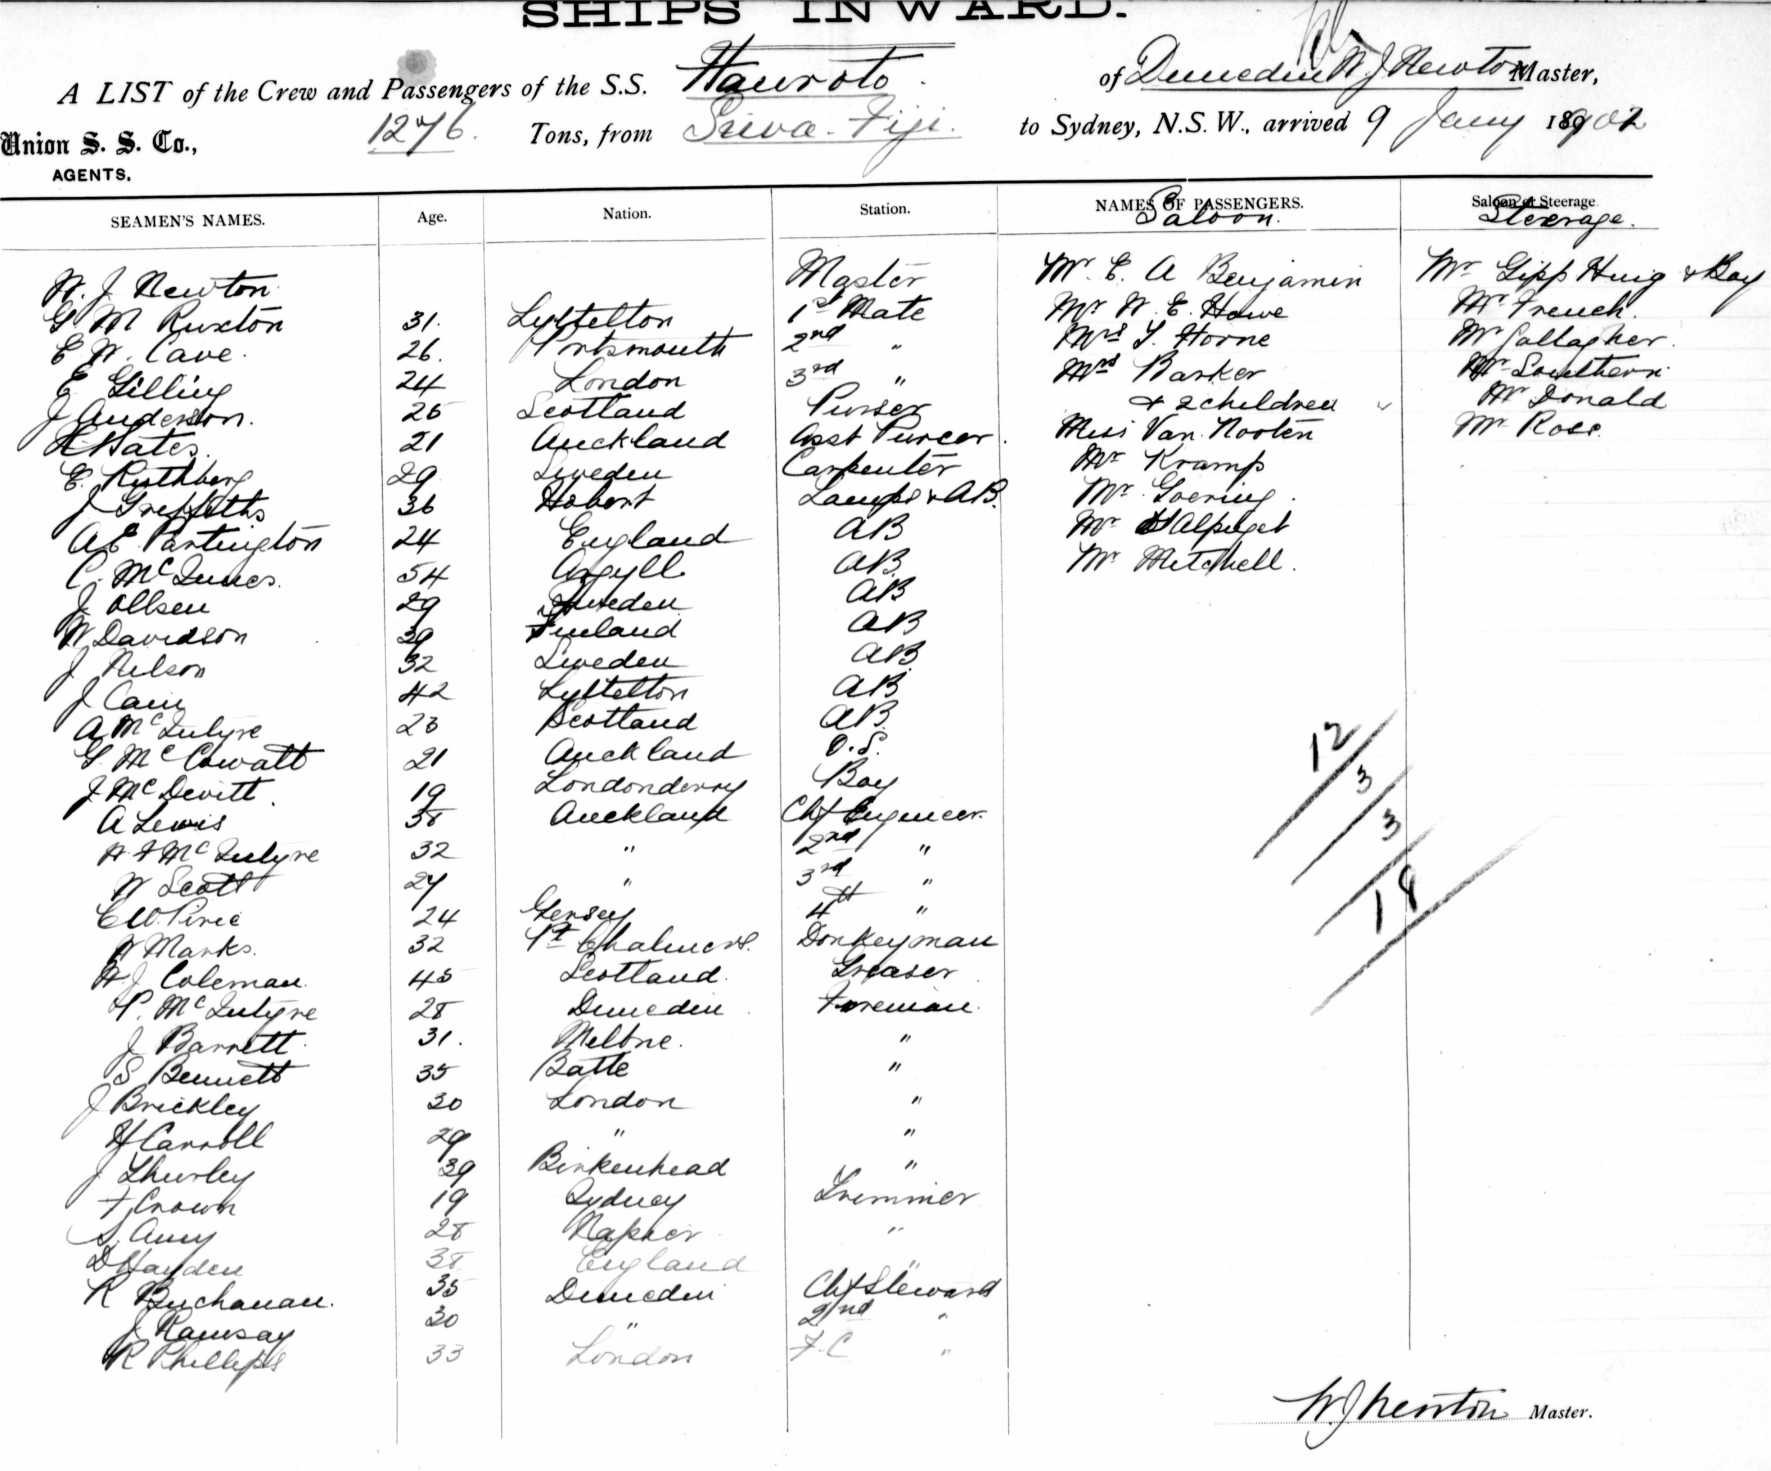 SHIPS INWARD.
A LIST of the Crew and Passengers of the S.S. Hauroto of Dunedin W. J. Newton Master,
Union S. S. Co., AGENTS. 1276 Tons, from Suva Fiji. to Sydney, N.S.W., arrived 9 Jany 1902
SEAMEN'S NAMES. Age. Nation. Station. NAMES OF PASSENGERS. Saloon or Steerage
Saloon. Steerage.
W. J. Newton Master Mr. E. A Benjamin Mr Gipp Hing & Boy
G M Ruxton 31. Lyttelton 1st Mate Mr W. E. Howe Mr French.
E W. Cave. 26. Portsmouth 2nd " Mrs Horne Mr Gallagher.
E Gilling 24 London 3rd " Mrs Barker Mr Southern
J Anderson. 25 Scotland Purser & 2 children Mr Donald
Bates. 21 Auckland Asst Purcer. Miss Van Nooten Mr Rose.
E. Ruthberg 29 Sweden Carpenter Mr Kramp
J Greffiths 36 Hobart Lamps & AB. Mr Goering.
A E Partington 24 England AB Mr Alpuget
C. McInnes. 54 Argyll AB. Mr Mitchell.
J Ollsen 29 Sweden AB
W Davidson 39 Finland AB
J Nelson 32 Sweden AB.
J Cain 42 Lyttelton AB
A McIntyre 23 Scotland AB.
G. McCowatt 21 Auckland O.S.
J McDevitt. 19 Londonderry Boy
A Lewis 38 Auckland Chf Engineer.
McIntyre 32 " 2nd "
W Scott 27 " 3rd "
C W. Piree 24 Gersey 4th "
Marks. 32 Pt Chalmers. Donkeyman
J Coleman. 45 Scotland. Greaser
P. McIntyre 28 Dunedin Foreman.
J Barrett 31. Melbne. "
S Bennett 35 Batte "
J Brickley 30 London "
H Carroll 29 " "
J Thurley 39 Birkenhead "
F Crown 19 Sydney Trimmer
S. Amy 28 Napier "
D Hayden 38 England "
R Buchanan. 35 Dunedin Chf Steward
J Ramsay 30 " 2nd "
R Phillips 33 London F.C "
12
3
3
18
W J Newton Master.